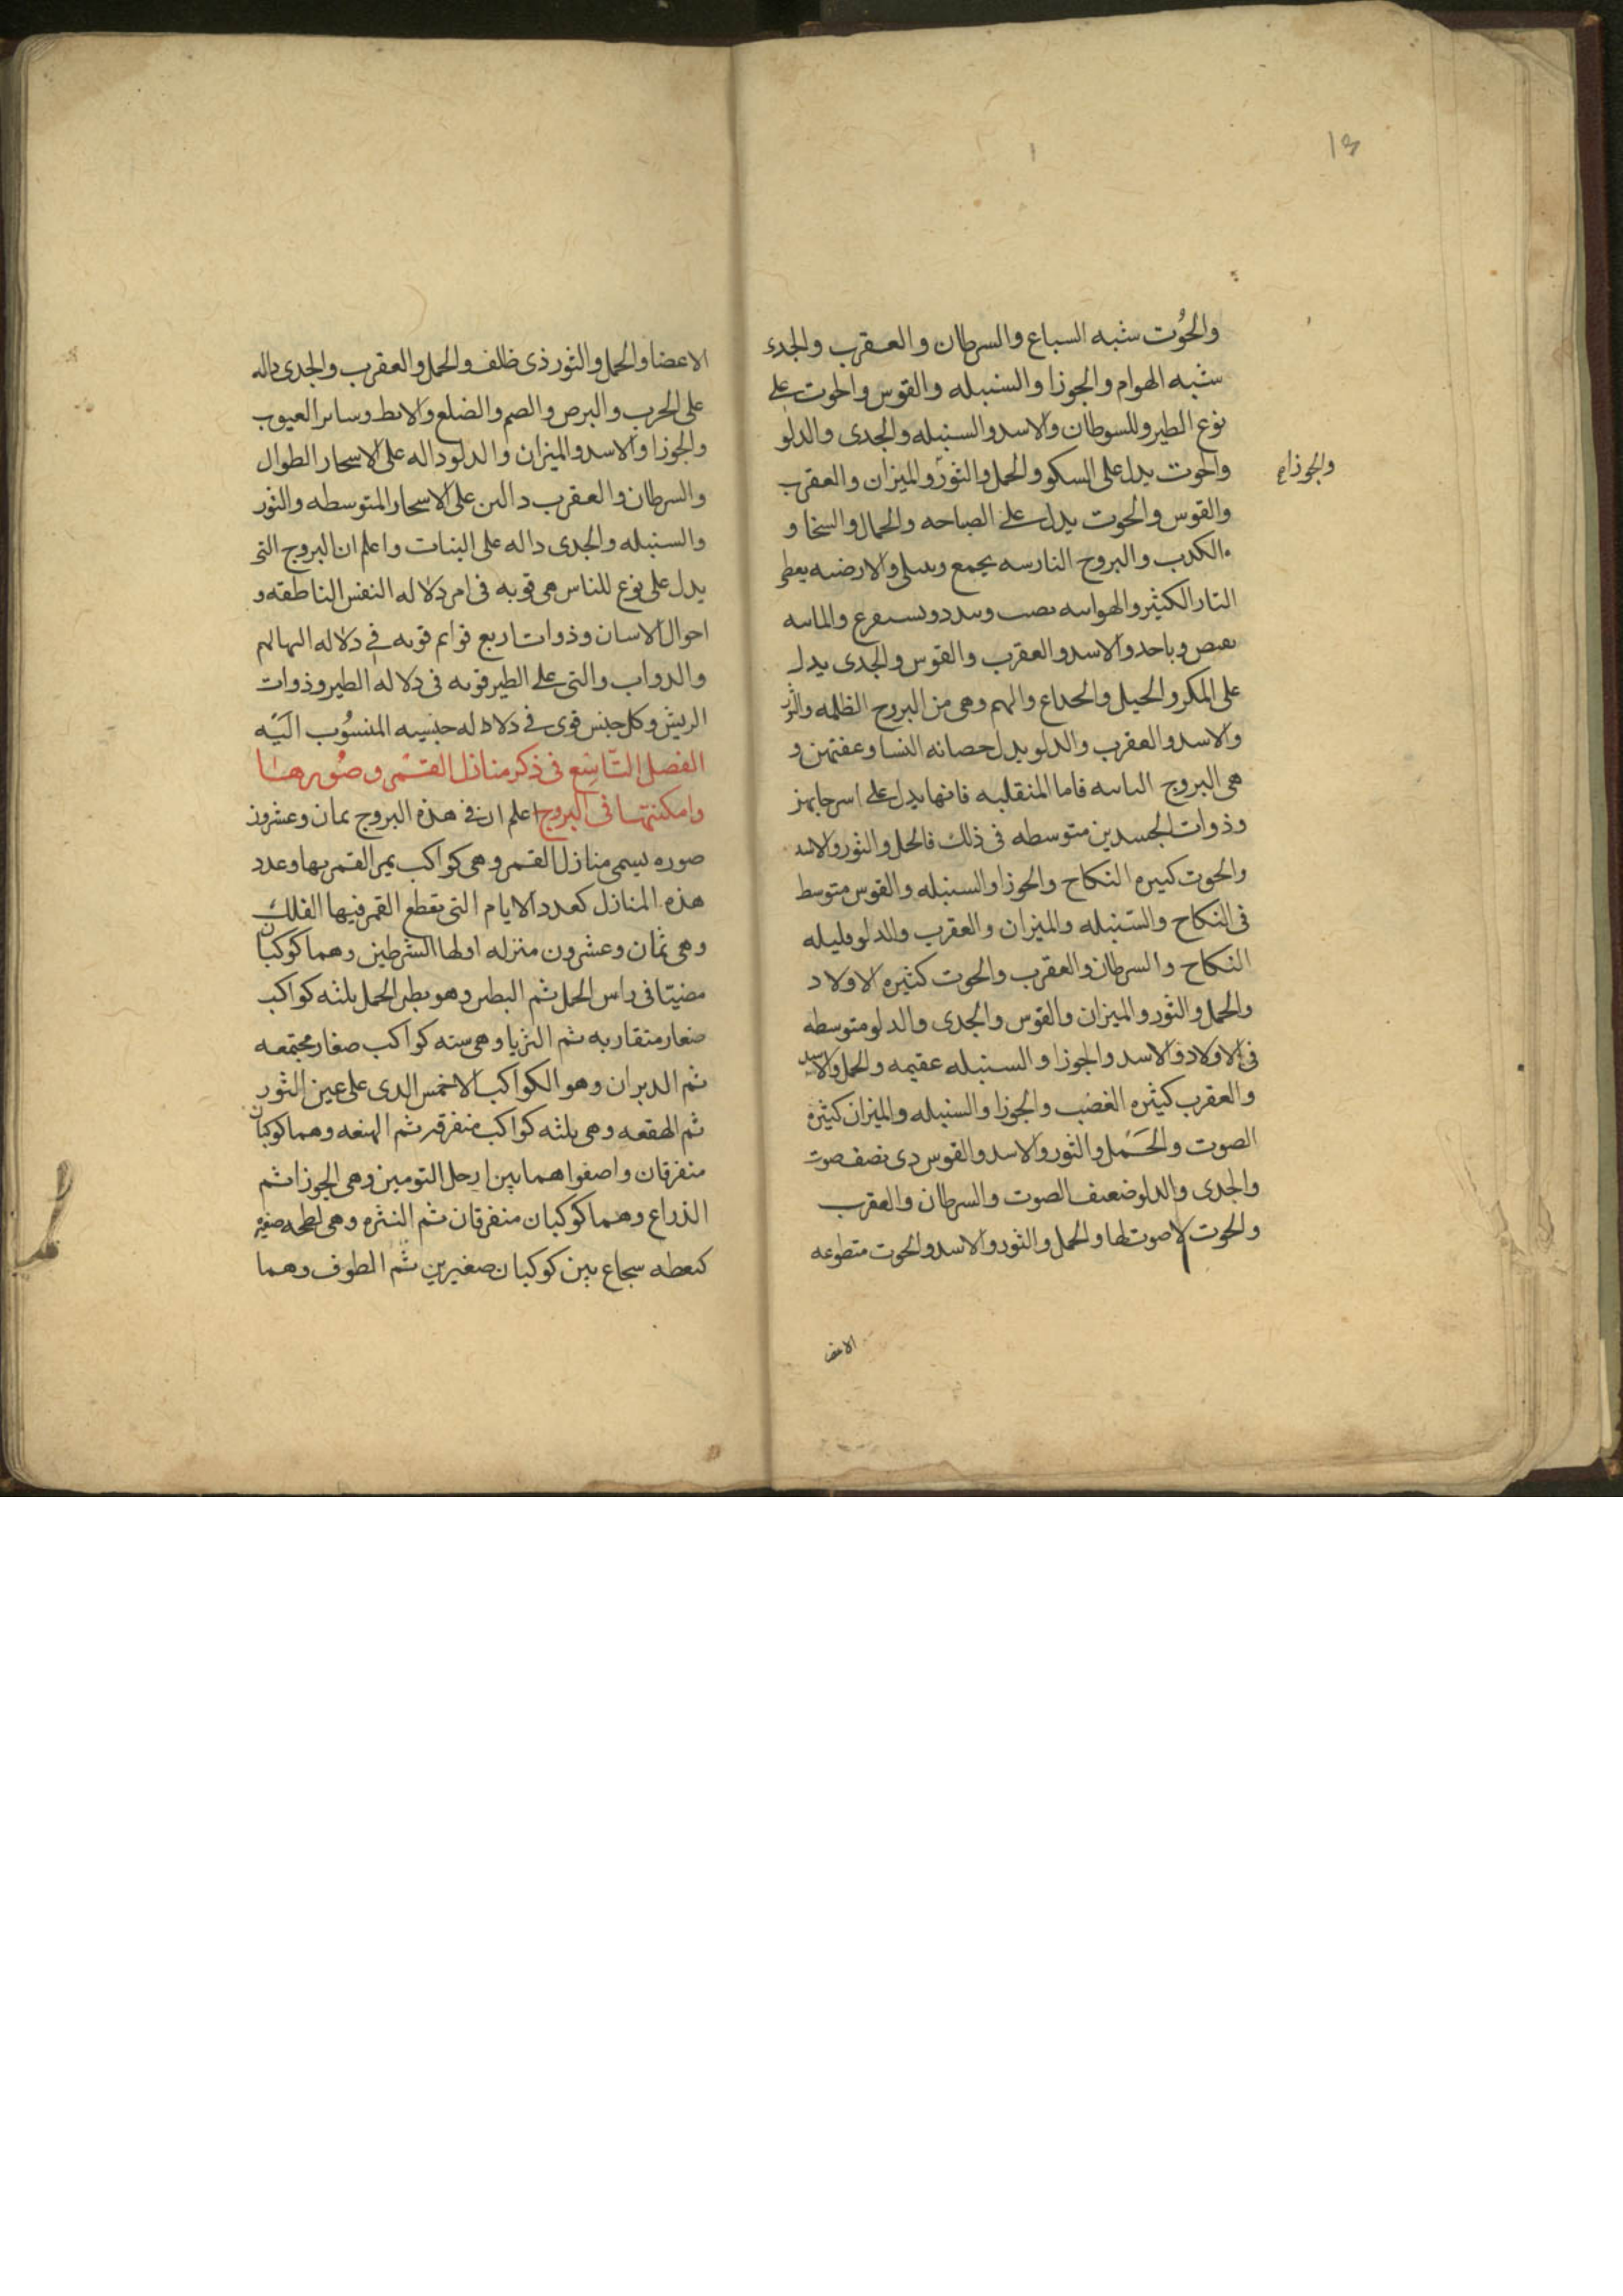 13
والحُوت شبه السباع والسرطان والعقرب والجدى
شبه الهوام والجوزا والسنبله والقوس والحوت على
نوع الطير وللسرطان والاسد والسنبله والجدى والدلو
والحوت يدل على السكو والحمل والثور والميزان والعقرب
والجوزا
والقوس والحوت يدل على الصباحه والجمال والسخا و
الكدب والبروج النارىه يجمع و والارضيه يعطى
النار الكثير والهواىه وىىدد وىسىفرع والماىىه
وىاحد والاسد والعقرب والقوس والجدى يدل
على المكر والحيل والخداع والهم وهى من البروج الظلمه والثور
والاسد والعقرب والدلو يدل حصانه النسا وعفتهن و
هى البروج الىاىىه فاما المنقلبه فانها يدل على
وذوات الجسدين متوسطه فى ذلك فالحمل والثور والاسد
والحوت كىىره النكاح والجوزا والسنبله والقوس متوسط
فى النكاح والسنبله والميزان والعقرب والدلو قليله
النكاح والسرطان والعقرب والحوت كثيره الاولاد
والحمل والثور والميزان والقوس والجدى والدلو متوسطه
فى الاولاد والاسد والجوزا والسنبله عقيمه والحمل والاسد
والعقرب كثيره الغضب والجوزا والسنبله والميزان كثيره
الصوت والحَمل والثور والاسد والقوس دى نصف صوت
والجدى والدلو ضعيف الصوت والسرطان والعقرب
والحوت لا صوت لها والحمل والثور والاسد والحوت متطوعه
الاعضا
الاعضا والحمل والثور ذى ظلف والحمل والعقرب والجدى داله
على الجرب والبرص والصم والضلع والابط وساىر العيوب
والجوزا والاسد والميزان والدلو داله على الاسحار الطوال
والسرطان والعقرب دالىن على الاسحار المتوسطه والثور
والسنبله والجدى داله على النبات واعلم ان البروج التى
يدل على نوع للناس هى قويه فى امر دلاله النفس الناطقه و
احوال الاىسان وذوات اربع قوايم قويه فى دلاله البهايم
والدواب والتى على الطير قويه فى دلاله الطير وذوات
الريش وكل جنس قوى فى دلاداله جنسه المنسُوب اليَّه
الفصل التّاسِع فى ذكر منازل القمر وصُورها
وامكنتها فى البروج اعلم ان فى هذه البروج ثمان وعشرون
صوره يسمى منازل القمر وهى كواكب يمر القمر بها وعدد
هذه المنازل كعدد الايام التى يقطع القمر فيها الفلك
وهى ثمان وعشرون منزله اولها الشرطين وهما كوكبان
مضيئا فى راس الحمل ثم البطين وهو بطن الحمل ثلثه كواكب
صغار متقاربه ثم الثريا وهى سته كواكب صغار مجتمعه
ثم الدبران وهو الكواكب الاخمس الدى على عين الثور
ثم الهقعه وهى ثلثه كواكب متفرقه ثم الهنعه وهما كوكبان
متفرقان واصفوا هما بين ارجل التومين وهى الجوزا ثم
الذراع وهما كوكبان متفرقان ثم النثره وهى لطحه صغيره
كىعطه سحاع بين كوكبان صغيرين ثم الطرف وهما